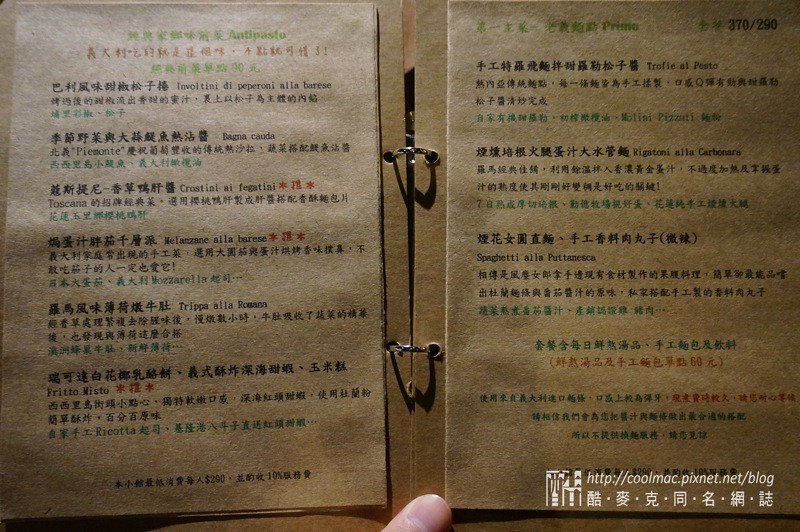 經典家鄉味前菜 Antipasto
義大利吃的就是這個味，不點就可惜了!
經典前菜單點 90 元
巴利風味甜椒松子捲 Involtini di peperoni alla barese
烤過後的甜椒流出香甜的蜜汁，裹上以松子為主體的內餡
埔里彩椒、松子
季節野菜與大蒜鯷魚熱沾醬 Bagna cauda
北義"Piemonte"慶祝葡萄豐收的傳統熱沙拉，蔬菜搭配鯷魚沾醬
西西里島小鯷魚、義大利橄欖油
蔻斯提尼-香草鴨肝醬 Crostini ai fegatini *推*
Toscana 的招牌經典菜。選用櫻桃鴨肝製成肝醬搭配香酥麵包片
花蓮玉里櫻桃鴨肝
焗蛋汁胖茄千層派 Melanzane alla barese *推*
義大利家庭常出現的手工菜，選用大圓茄與蛋汁烘烤香味撲鼻，不
敢吃茄子的人一定也愛它!
日本大蛋茄、義大利 Mozzarella 起司…
羅馬風味薄荷燉牛肚 Trippa alla Romana
經香草處理繁複去除腥味後，慢燉數小時，牛肚吸收了蔬菜的精華
後，也發現與薄荷這麼搭
澳洲蜂巢牛肚、新鮮薄荷…
瑞可達白花椰乳酪餅、義式酥炸深海甜蝦、玉米糕
Fritto Misto *推*
西西里島街頭小點心，獨特軟嫩口感，深海紅頭甜蝦，使用杜蘭粉
簡單酥炸，百分百原味
自家手工 Ricotta 起司，基隆港八斗子直送紅頭甜蝦…
本小館最低消費每人$290，並酌收 10%服務費
第一主菜 老義麵點 Primo 套餐 370/290
手工特羅飛麵拌甜羅勒松子醬 Trofie al Pesto
熱內亞傳統麵點，每一條麵皆為手工揉製，口感Q彈有勁與甜羅勒
松子醬清炒完成
自家有機甜羅勒、初榨橄欖油、Molini Pizzuti 麵粉
煙燻培根火腿蛋汁大水管麵 Rigatoni alla Carbonara
羅馬經典佳餚，利用餘溫拌入香濃黃金蛋汁，不過度加熱及掌握蛋
汁的熟度使其剛剛好變稠是好吃的關鍵!
7 日熟成厚切培根、勤億牧場靚好蛋、花蓮純手工煙燻火腿
煙花女圓直麵、手工香料肉丸子(微辣)
Spaghetti alla Puttanesca
相傳是風塵女郎拿手邊現有食材製作的果腹料理，簡單卻最能品嚐
出杜蘭麵條與番茄醬汁的原味，私家搭配手工製的香料肉丸子
蔬菜熬煮番茄醬汁、產銷認證雞 豬肉…
套餐含每日鮮熬湯品、手工麵包及飲料
(鮮熬湯品及手工麵包單點 60 元)
使用來自義大利進口麵條，口感上較為彈牙，現煮費時較久，請您耐心等候
請相信我們會為您把醬汁與麵條做出最合適的搭配
所以不提供換麵服務，請您見諒
最低消費每人$290，並酌收 10%服務費
http://coolmac.pixnet.net/blog
酷‧麥‧克‧同‧名‧網‧誌